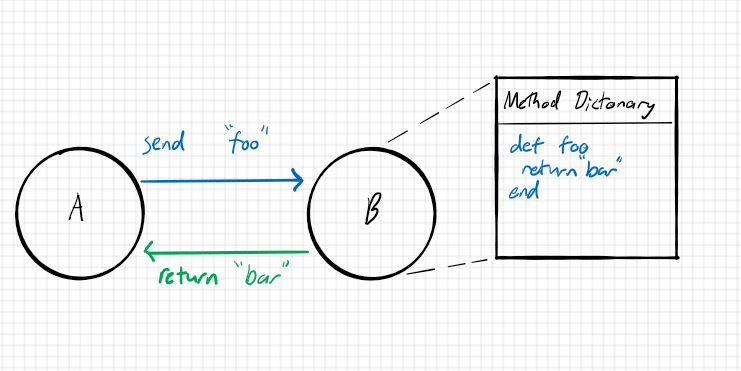 send "foo"
A
B
return "bar"
Method Dictonary
def foo
return "bar"
end